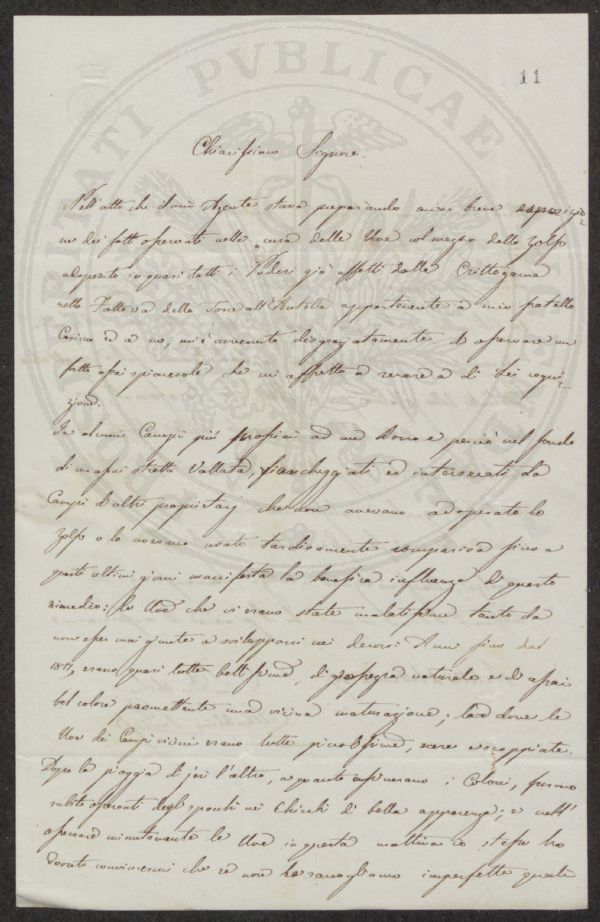 11
Chiarissimo Signore.
Nell'atto che il mio Agente stava preparando una breve esposizio-
ne dei fatti osservati nella cura delle Uve col mezzo dello Zolfo
adoperato in quasi tutti i Poderi già affetti dalla Crittogama
nella Fattoria della Torre all'Antella appartenente a mio fratello
Cosimo ed a me, mi è avvenuto disgraziatamente di osservare un
fatto assai spiacevole che mi affretto a recare a di Lei cogni-
zione.
In alcuni Campi più prossimi ad un Borro e perciò nel fondo
di un assai stretta Vallata, fiancheggiati ed intersecati da
Campi d'altri proprietarj che non avevano adoperato lo
Zolfo o lo avevano usato tardivamente compariva fino a
questi ultimi giorni manifesta la benefica influenza di questo
rimedio: le Uve che vi erano state malatissime tanto da
non esser mai giunte a svilupparsi nei decorsi Anni fino dal
1851, erano quasi tutte bellissime, di grossezza naturale e di assai
bel colore promettente una vicina maturazione; laddove le
Uve dei Campi vicini erano tutte piccolissime, nere e scoppiate.
Dopo la pioggia di jeri l'altro, a quanto asseverano i Coloni, furono
subito osservati degli spacchi nei Chicchi di bella apparenza; e nell'
osservare minutamente le Uve in questa mattina io stesso ho
dovuto convincermi che se non le raccogliamo imperfette quali